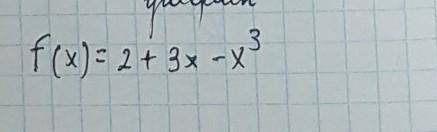 f(x) = 2 + 3x - x³